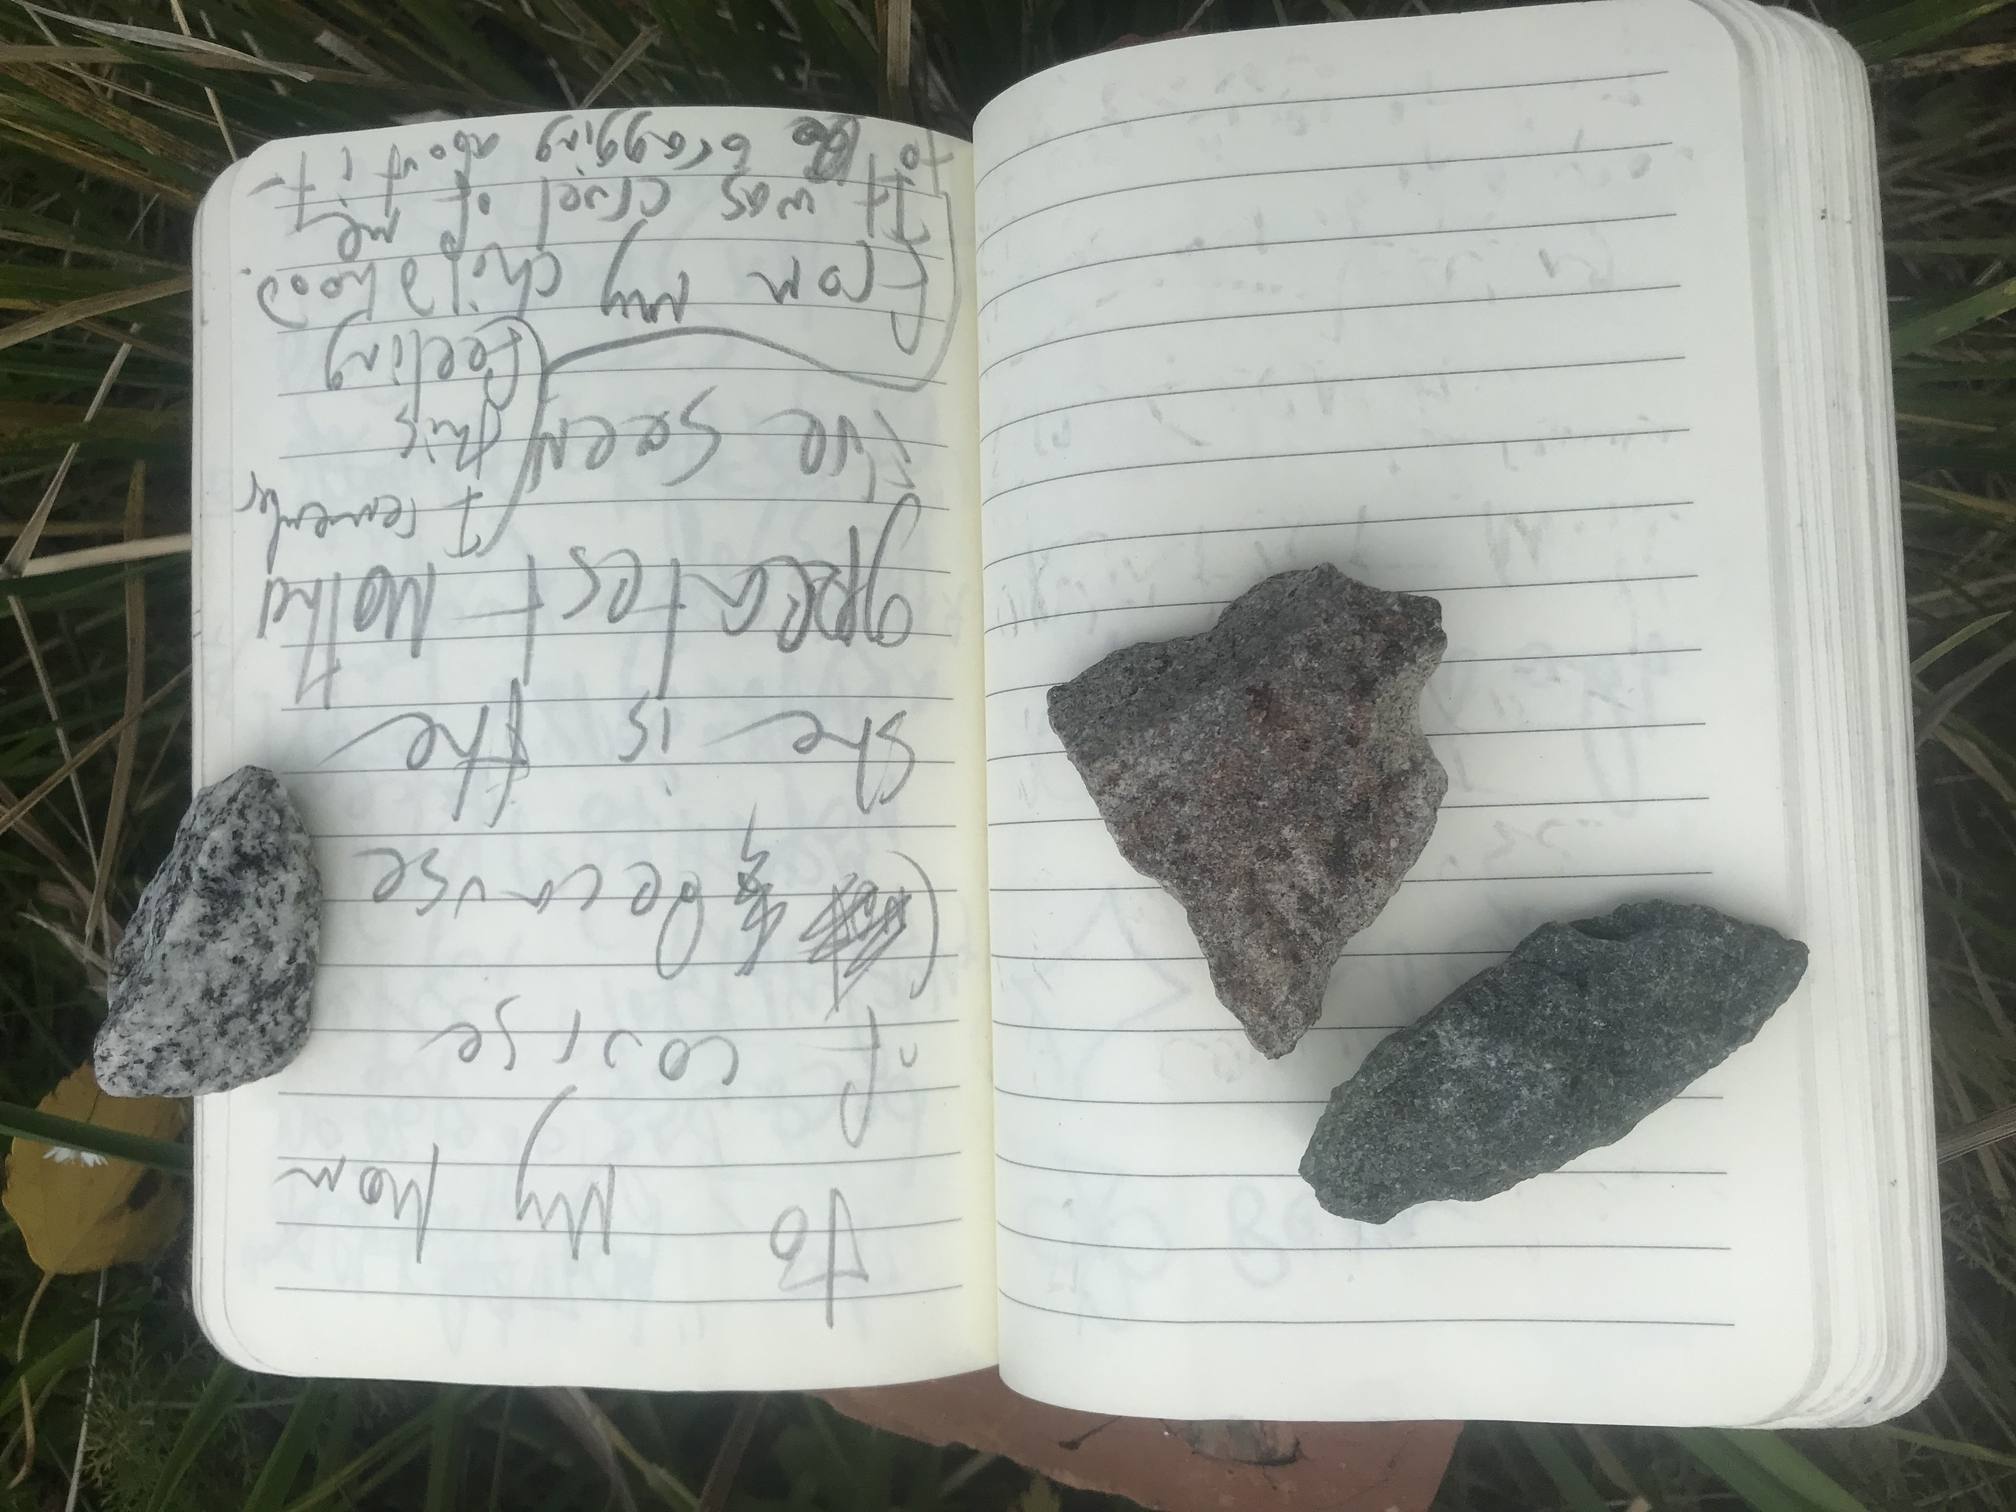 to My Mom
of course
( because
she is the
greatest Mother
I've seen
I remember
this
feeling
from my childhood.
It was cruel of me
to be bragging about it